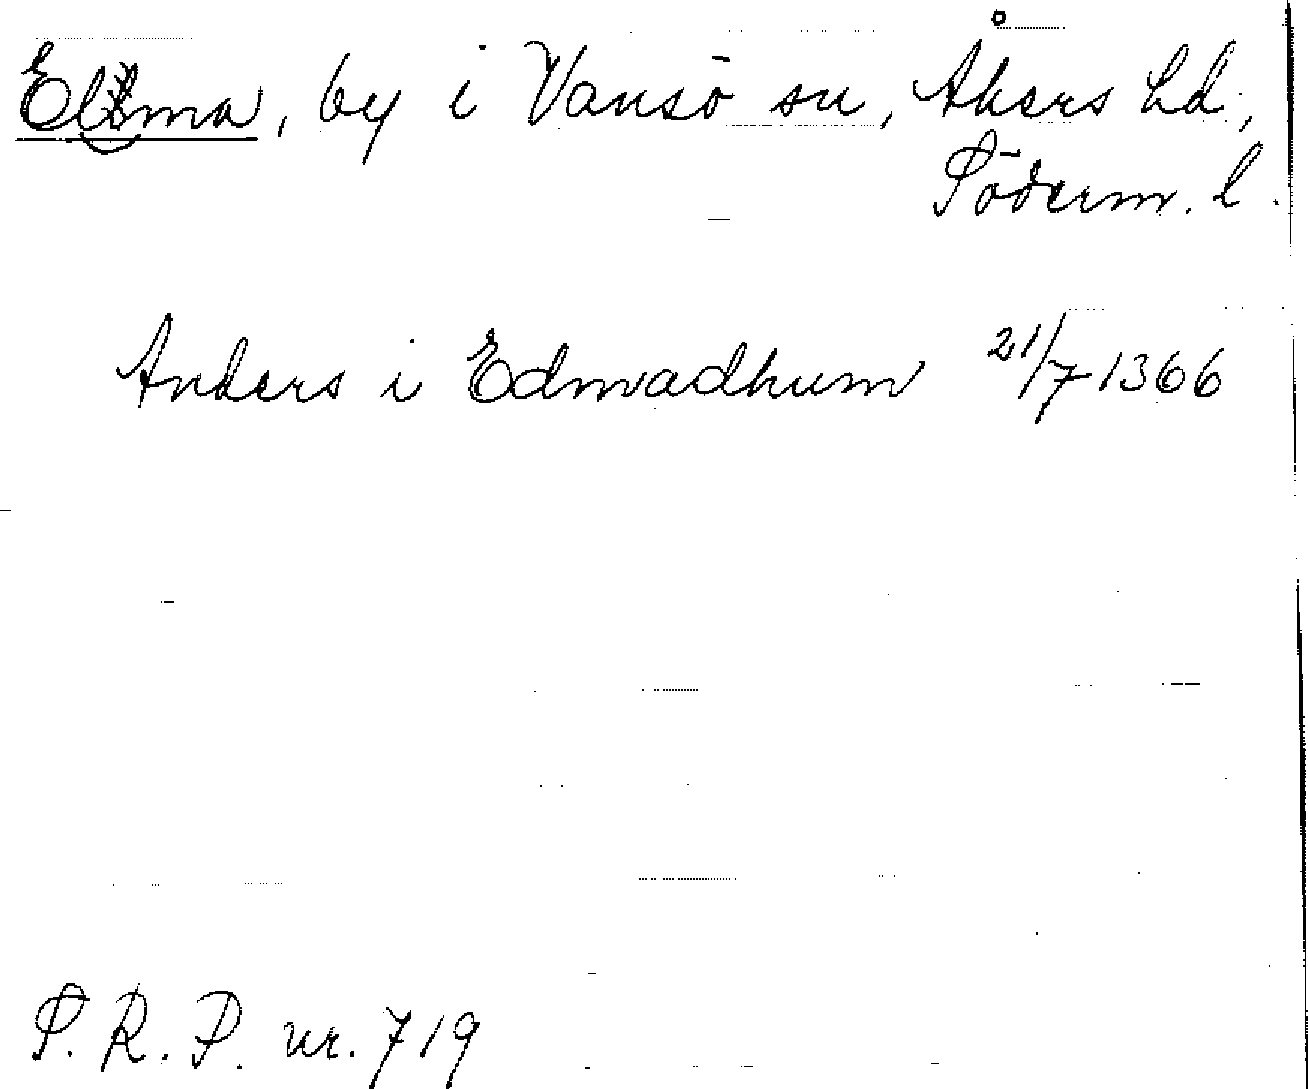 Elvma, by i Vansö sn, Åkers hd.,
Söderm. l.
Anders i Edmadhum 21/7 1366
S. R. P. nr. 719